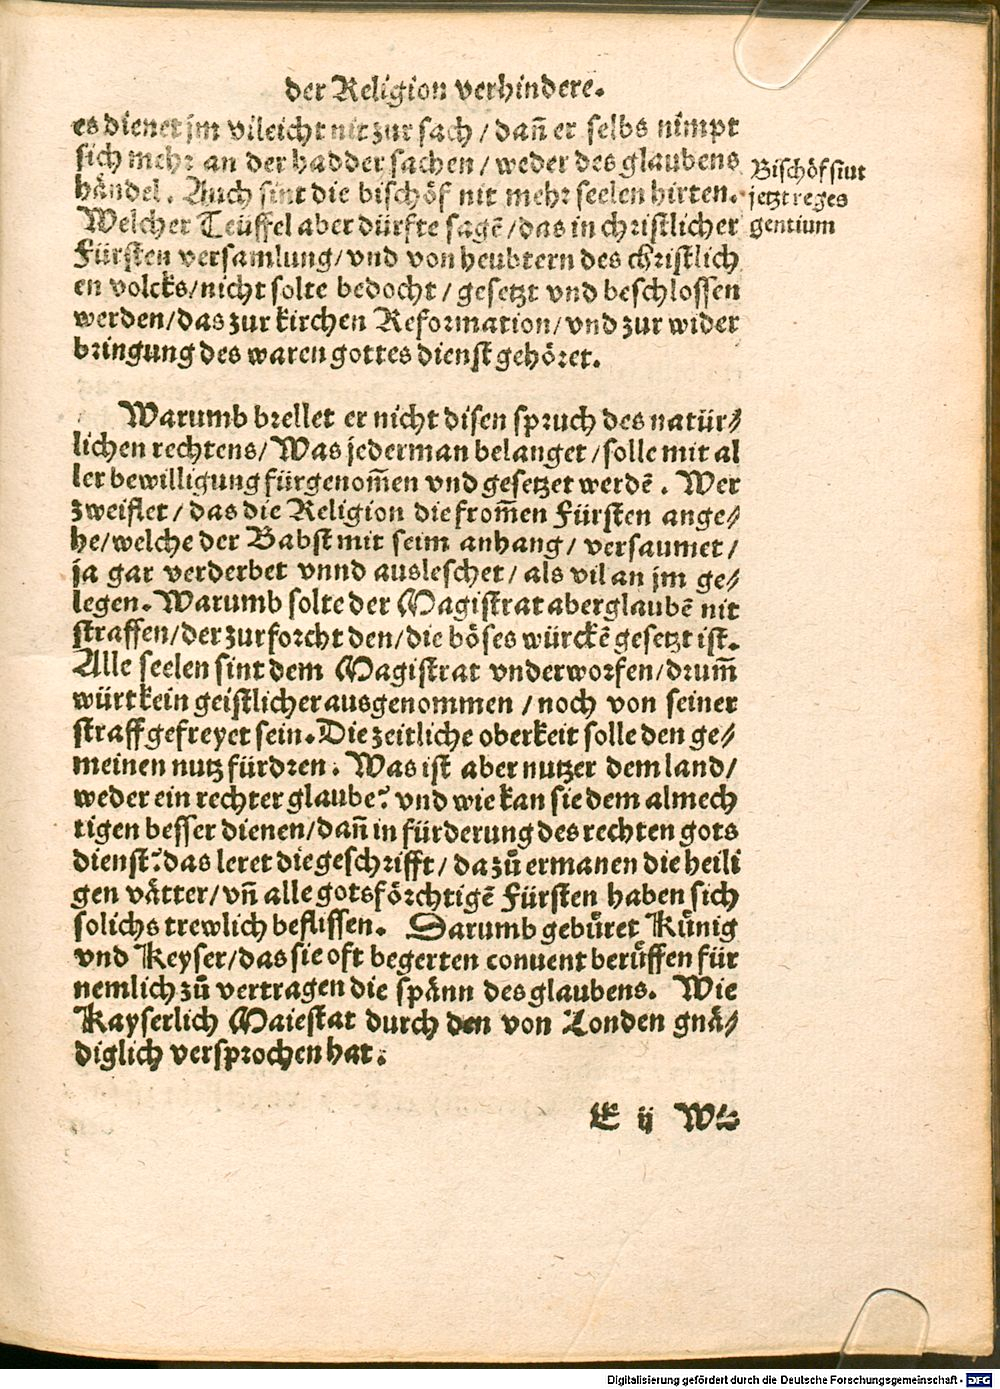 der Religion verhindere.
es dienet jm vileicht nit zur sach / dañ er selbs nimpt
sich mehr an der hadder sachen / weder des glaubens
händel. Auch sint die bischöf nit mehr seelen hirten.
Bischöf sint
jetzt reges
gentium
Welcher Teüffel aber dürfte sagē / das in christlicher
Fürsten versamlung / vnd von heubtern des christlich
en volcks / nicht solte bedocht / gesetzt vnd beschlossen
werden / das zur kirchen Reformation / vnd zur wider
bringung des waren gottes dienst gehöret.
Warumb brellet er nicht disen spruch des natür⸗
lichen rechtens / Was jederman belanget / solle mit al
ler bewilligung fürgenom̃en vnd gesetzet werdē. Wer
zweiflet / das die Religion die from̃en Fürsten ange⸗
he / welche der Babst mit seim anhang / versaumet /
ja gar verderbet vnnd ausleschet / als vil an jm ge⸗
legen. Warumb solte der Magistrat aberglaubē nit
straffen / der zur forcht den / die böses würckē gesetzt ist.
Alle seelen sint dem Magistrat vnderworfen / drum̃
würt kein geistlicher ausgenommen / noch von seiner
straff gefreyet sein. Die zeitliche oberkeit solle den ge⸗
meinen nutz fürdren. Was ist aber nutzer dem land /
weder ein rechter glaube? vnd wie kan sie dem almech
tigen besser dienen / dañ in fürderung des rechten gots
dienst? das leret die geschrifft / da zů ermanen die heili
gen vätter / vñ alle gotsförchtigē Fürsten haben sich
solichs trewlich beflissen. Darumb gebüret Künig
vnd Keyser / das sie oft begerten conuent berüffen für
nemlich zů vertragen die spänn des glaubens. Wie
Kayserlich Maiestat durch den von Londen gnä⸗
diglich versprochen hat.
E ij
Digitalisierung gefördert durch die Deutsche Forschungsgemeinschaft - DFG